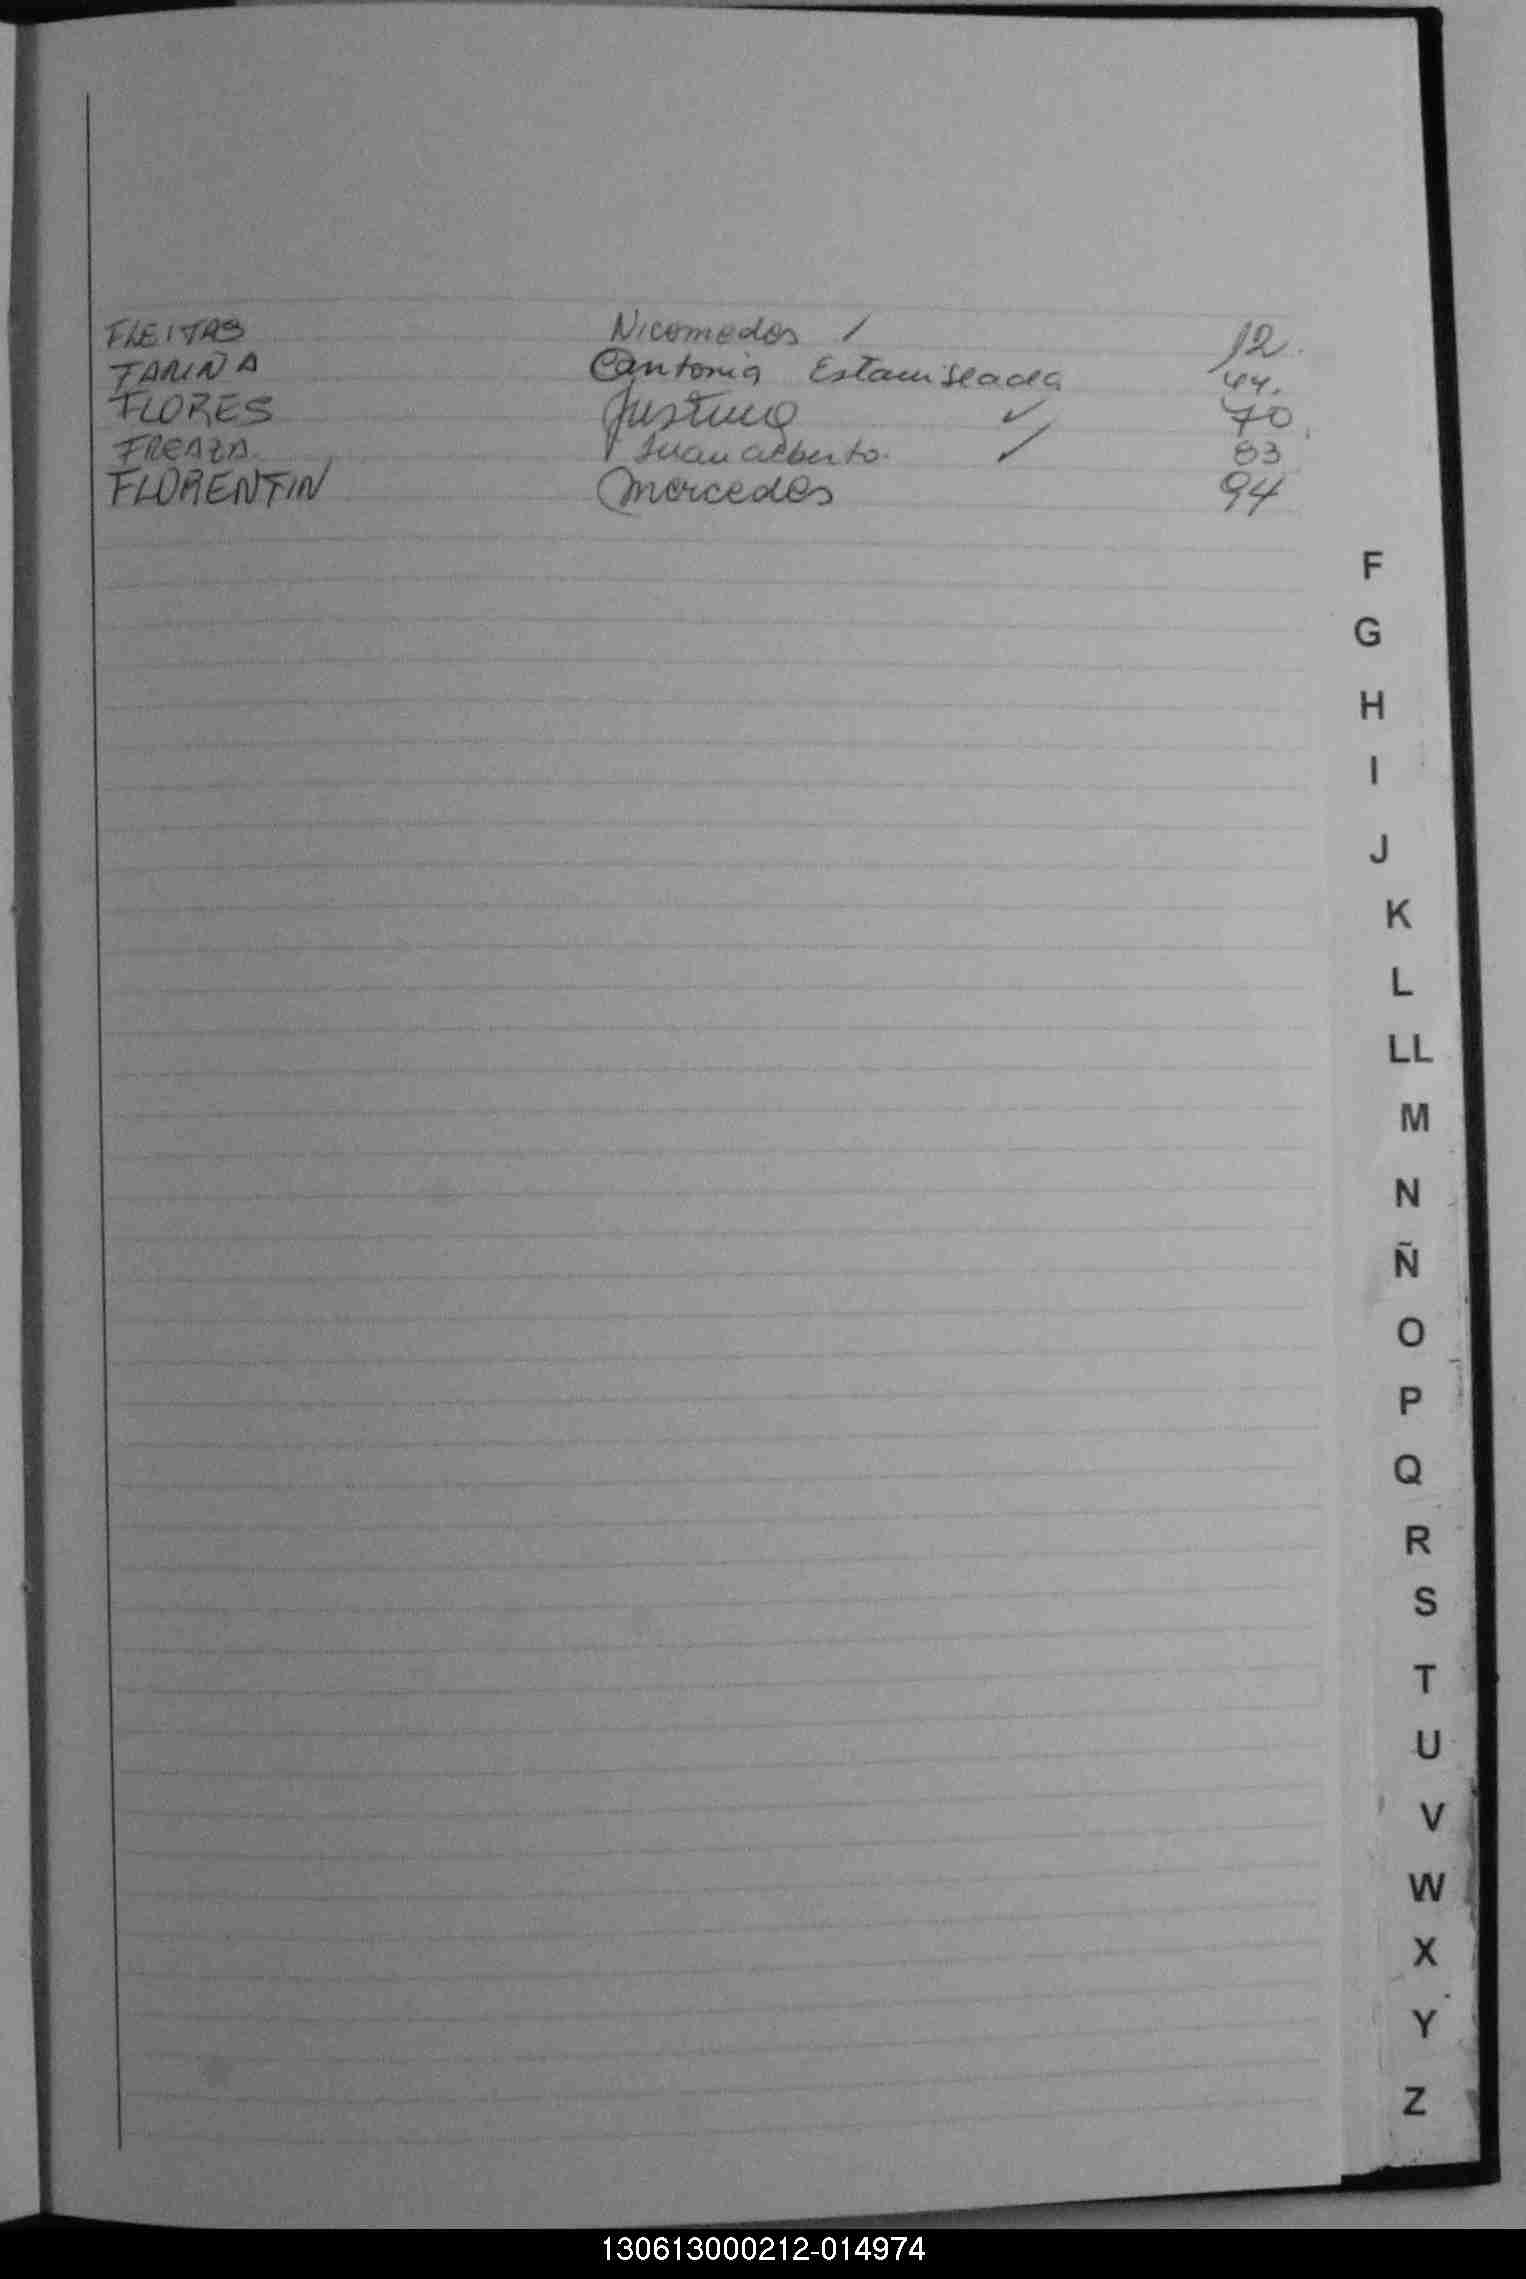 FLEITAS Nicomedes / 12.
FARIÑA Antonia Estanislada 44.
FLORES Justina ✓ 70
FREAZA. Juan Alberto. ✓ 83
FLORENTIN Mercedes 94
F
G
H
I
J
K
L
LL
M
N
Ñ
O
P
Q
R
S
T
U
V
W
X
Y
Z
130613000212-014974